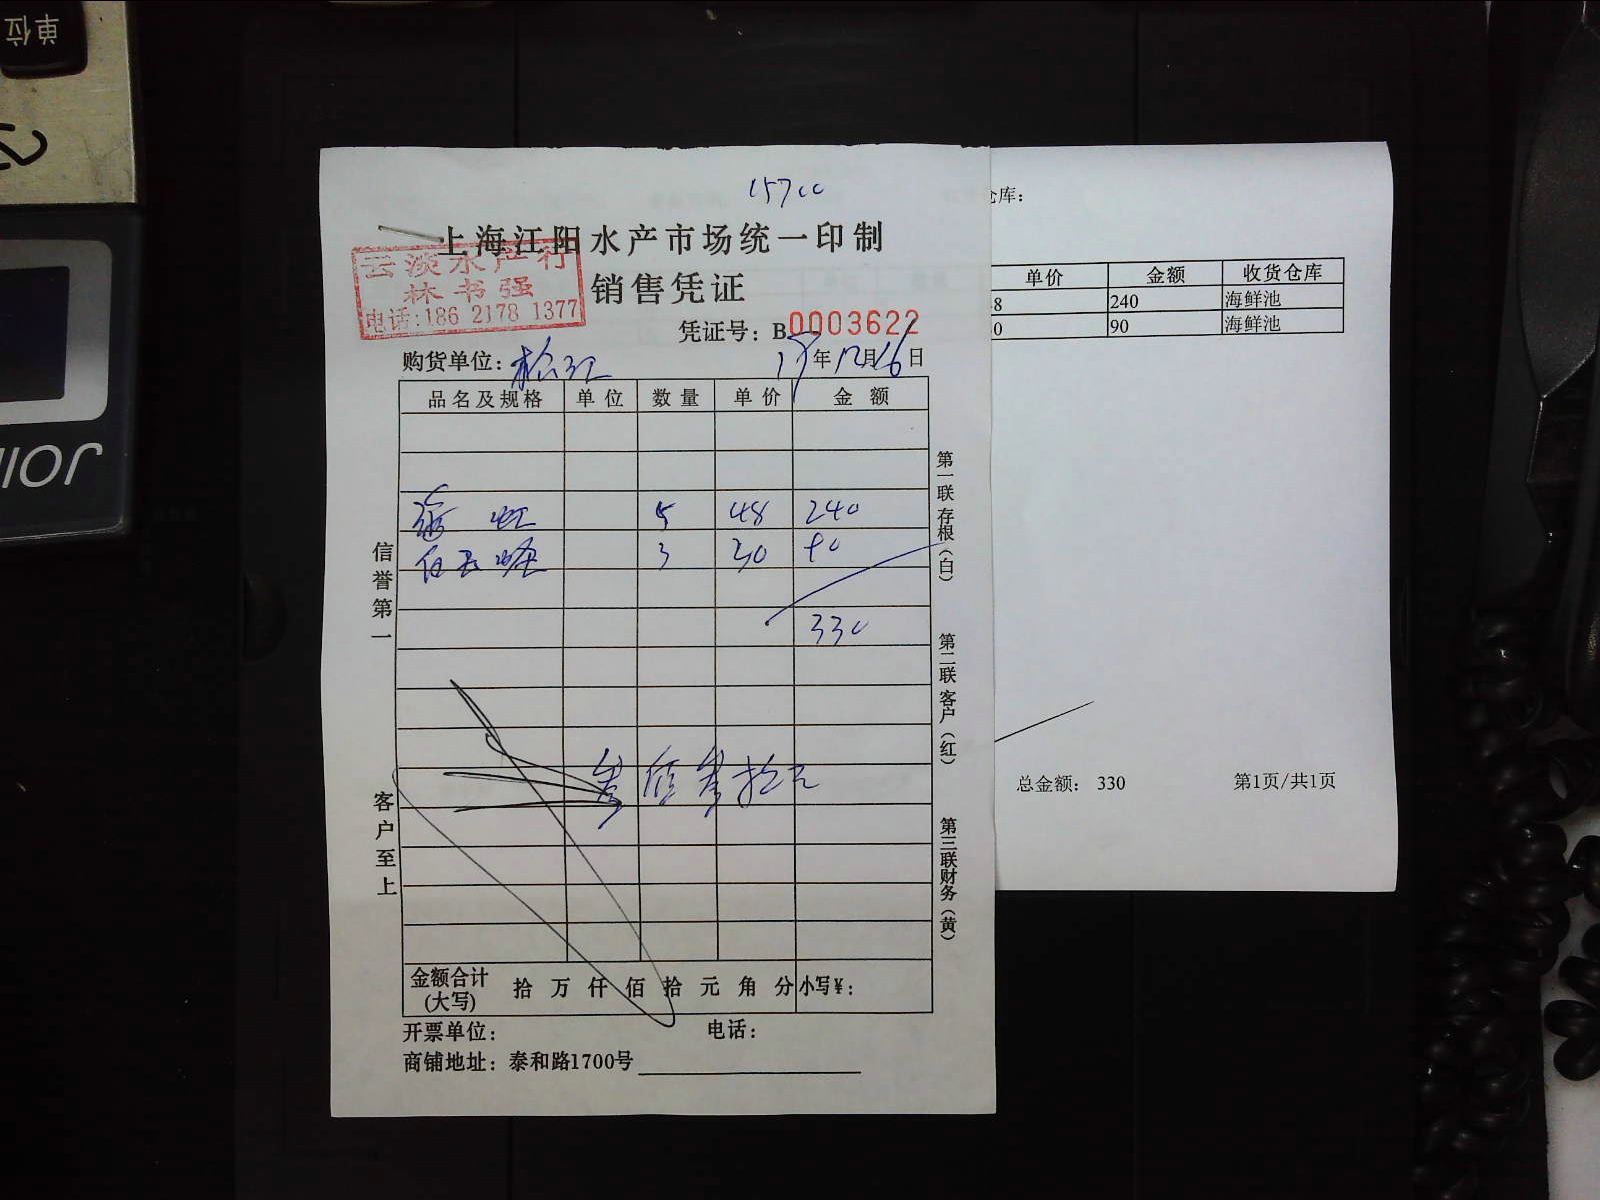 单位
JOIN
15700
上海江阳水产市场统一印制
销售凭证
云淡水产行
林书强
电话:186 2178 1377
凭证号: B 0003622
购货单位: 松江 19年12月16日
品名及规格 单位 数量 单价 金额
虾 5 48 240
3 30 90
330
叁佰叁拾元
信誉第一
客户至上
第一联存根(白)
第二联客户(红)
第三联财务(黄)
金额合计(大写) 拾万仟佰拾元角分 小写¥:
开票单位: 电话:
商铺地址: 泰和路1700号
仓库:
单价 金额 收货仓库
8 240 海鲜池
0 90 海鲜池
总金额: 330 第1页/共1页